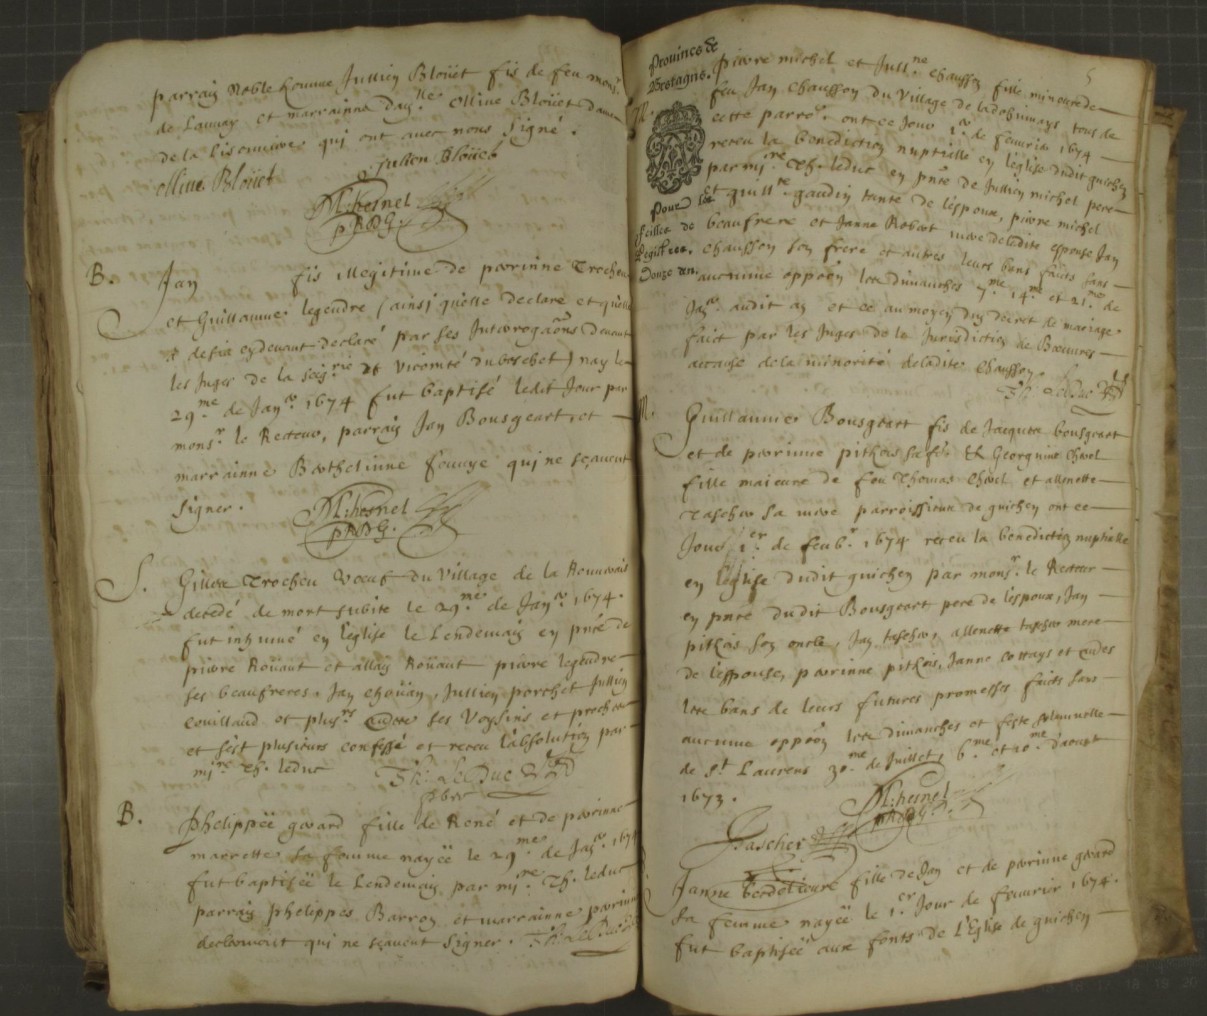 parrain Noble homme Jullien Bloüet fis de feu mons.r
de Launay et marrainne da.lle Ollive Bloüet dame
de la qui ont avec nous Signé.
Julien Bloüet
Ollive Bloüet
M: hesnel
p. R D G.
B.
Jan fis illegitime de perinne Trocheu
et Guillaume legendre (ainsi qu'elle declare et qu'elle
a desia cydevant declaré par ses Interrogaõns devant
les Juges de la seig.rie et vicomté du boschet) nay le
29.me de Jan.er 1674 fut baptisé ledit Jour par
mons.r le Recteur, parrain Jan Bousgeart, et
marrainne Barthelinne fouuye qui ne sçavent
Signer.
M: hesnel
p R D G.
S.
Gilles Trocheu Vœuf du village de la
decedé de mort subite le 29.me de Jan.er 1674.
fut inhumé en l'eglise le Lendemain en pñce de
pierre Roüaut et allain Roüaut pierre legendre
ses beaufreres, Jan Jullien porchet Jullien
couillaud et plus.rs autres ses Voysins et proches
et s'est plusieurs confessé et receu l'absolution par
mi.re Th. leduc
Th: Le Duc
pbre
B.
Phelippëe gerard fille de René et de perinne
marrette sa femme nayëe le 29.me de Jan.er 1674
fut baptisëe le Lendemain par mi.re Th. leduc
parrain phelippes Barron et marrainne perinne
qui ne sçavent Signer. Th: Le Duc
5
Province de
Bretagne.
Pour les
feilles de
Registres.
Douze den.
M.
pierre michel et Jull.ne Chausson fille mineure de
feu Jan Chausson du village de tous de
cette parr.e ont ce Jour 1.er de feuvrier 1674
receu la benediction nuptialle en l'eglise dudit guichen
par mi.re Th. leduc en pñce de Jullien michel pere
et guill.e gaudin tante de l'espoux, pierre michel
beaufrere et Janne Robert mere de ladite espouse Jan
Chausson son frere et autres leurs bans faits sans
aucunne oppõon les dimanches 7.me 14.me et 21.me de
Jan.er audit an et ce au moyen du decret de mariage
faict par les Juges de la Jurisdiction de Bœuvres
acause de la minorité deladite Chausson.
Th: Le Duc
M.
Guillaume Bousgeart fis de Jacques bousgeart
et de perinne pithois sa fe. Et Georgeinne
fille maieure de feu Thomas et allenette
Tascher sa mere parroissiens de guichen ont ce
Jour 1.er de feub.r 1674 receu la benediction nuptialle
en l'eglise dudit guichen par mons.r le Recteur
en pñce dudit Bousgeart pere de l'espoux, Jan
pithois son oncle, Jan tascher, allenette tascher mere
de l'espouse, perinne pithois, Janne cottays et autres
les bans de leurs futures promesses faits sans
aucunne oppõon les dimanches et feste solennelle
de S.t Laurens 30.me de Juillet, 6.me et 10.me d'aoust
1673.
M: hesnel
p R D G.
Tascher
Janne fille de Jan et de perinne gerard
sa femme nayëe le 1.er Jour de feuvrier 1674.
fut baptisëe aux fonts de L'Eglise de guichen